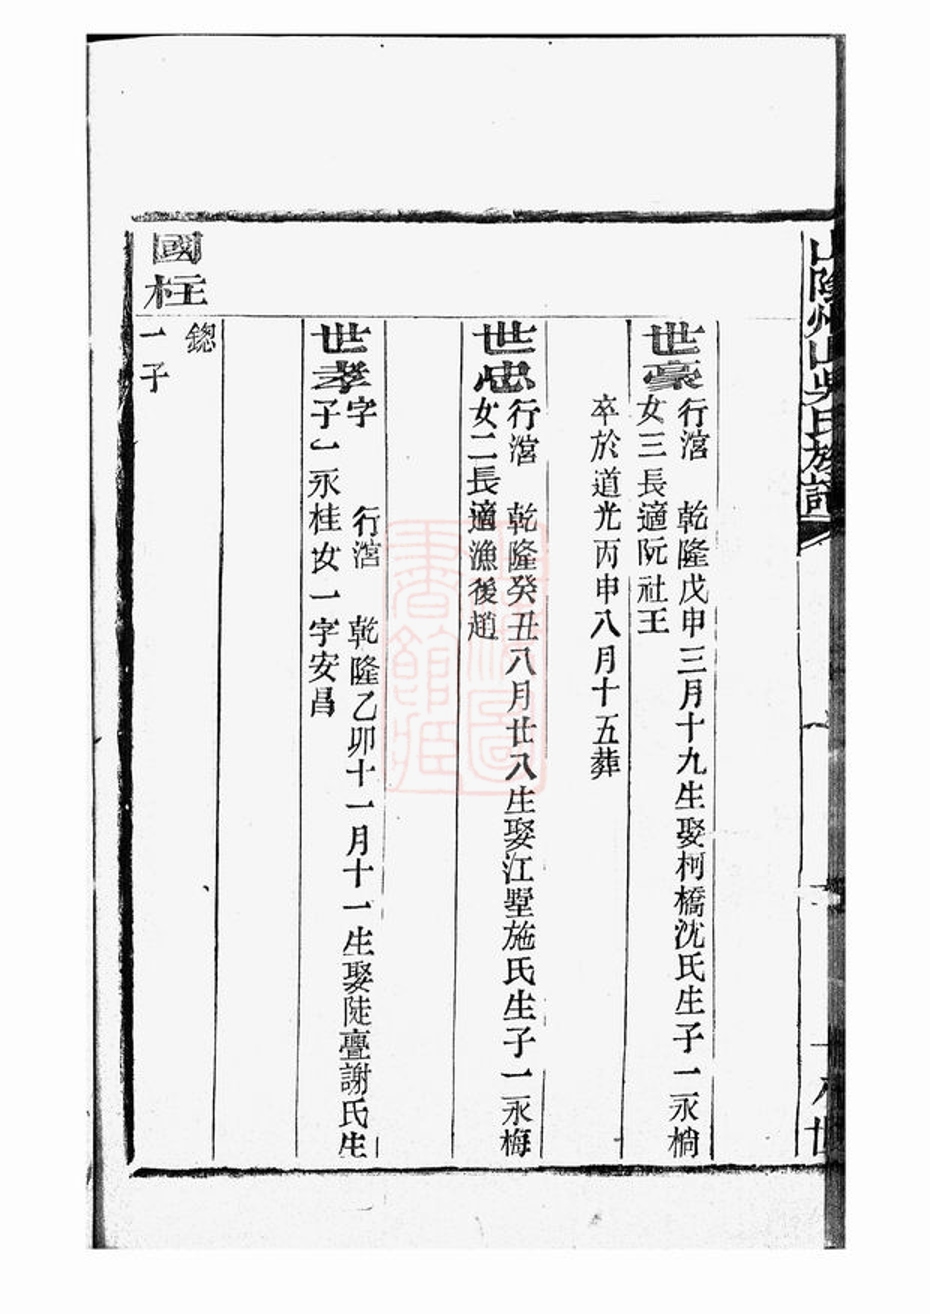 山陰州山吳氏族譜
十八世
世豪
行㴖 乾隆戊申三月十九生娶柯橋沈氏生子一永椭
女三長適阮社王
卒於道光丙申八月十五葬
世忠
行㴖 乾隆癸丑八月廿八生娶江墅施氏生子一永梅
女二長適漁後趙
世孝
字 行㴖 乾隆乙卯十一月十一生娶陡亹謝氏生
子一永桂女一字安昌
國柱
鍃
一子